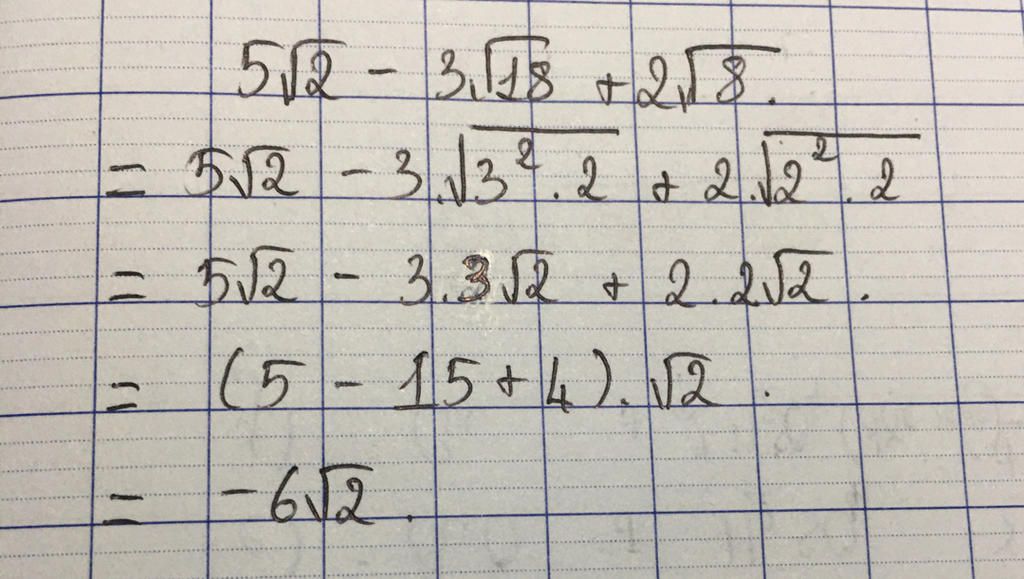 5√2 - 3√18 + 2√8.
= 5√2 - 3.√3² . 2 + 2.√2² . 2
= 5√2 - 3.3√2 + 2.2√2 .
= (5 - 15 + 4).√2 .
= -6√2 .